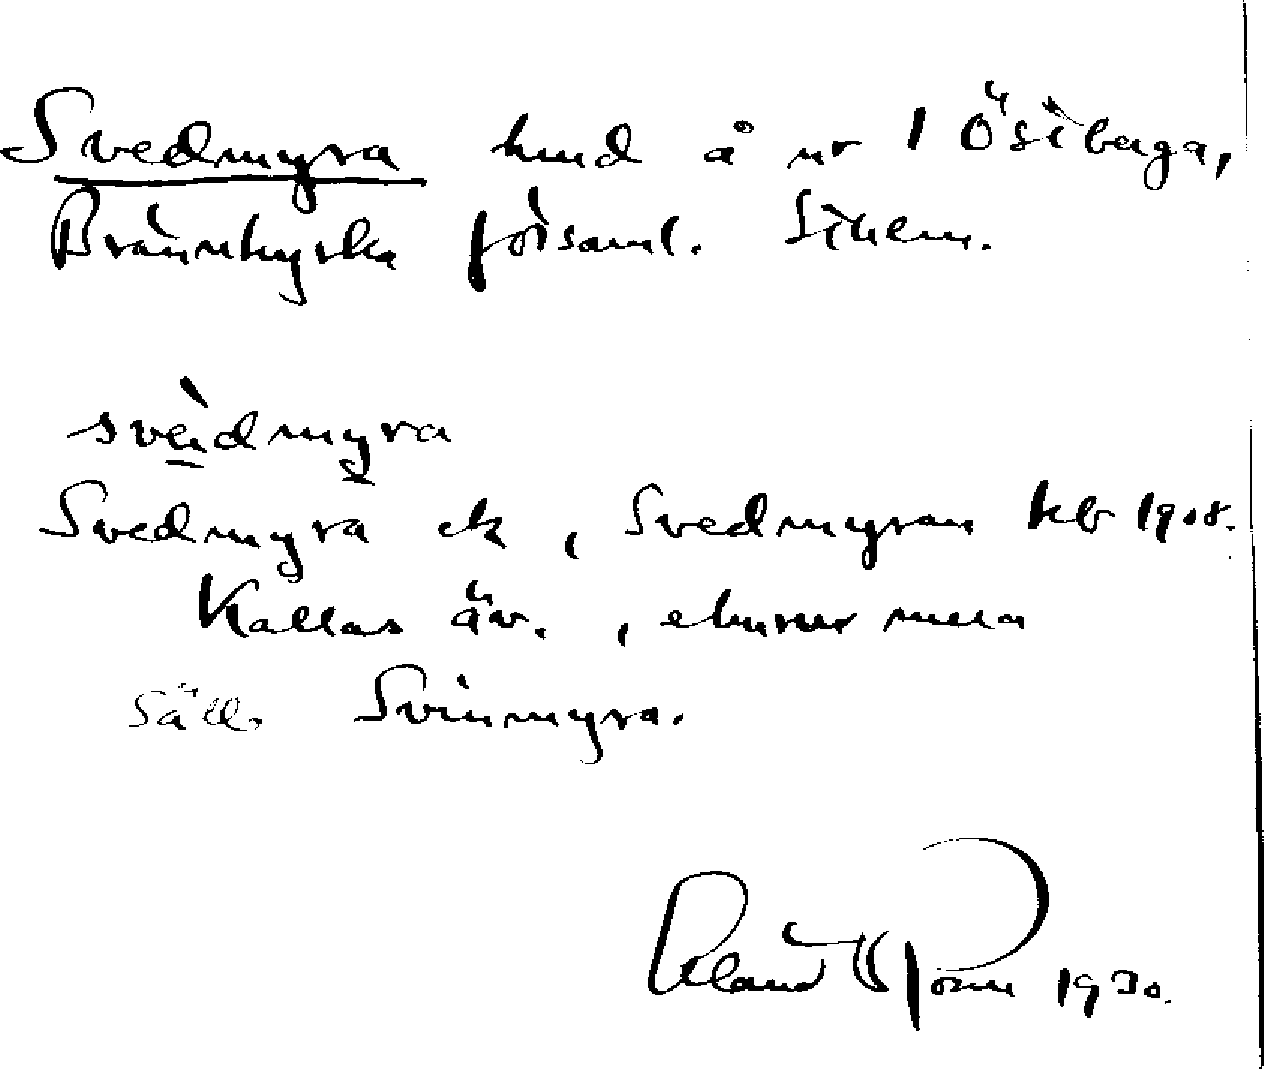 Svedmyra lund å nr 1 Östberga,
Brännkyrka församl. Sthlm.
svèdmyra
Svedmyra ek, Svedmyran kb 1908.
Kallas äv., ehuru mera
säll. Svinmyra.
1930.